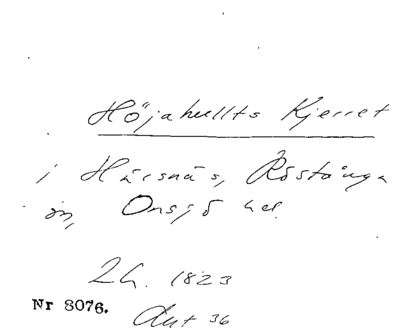 Höjahullts Kjerret
i Härsnäs, Röstånga
sn, Onsjö hd.
Lh. 1823
Nr 8076.
Aut 36